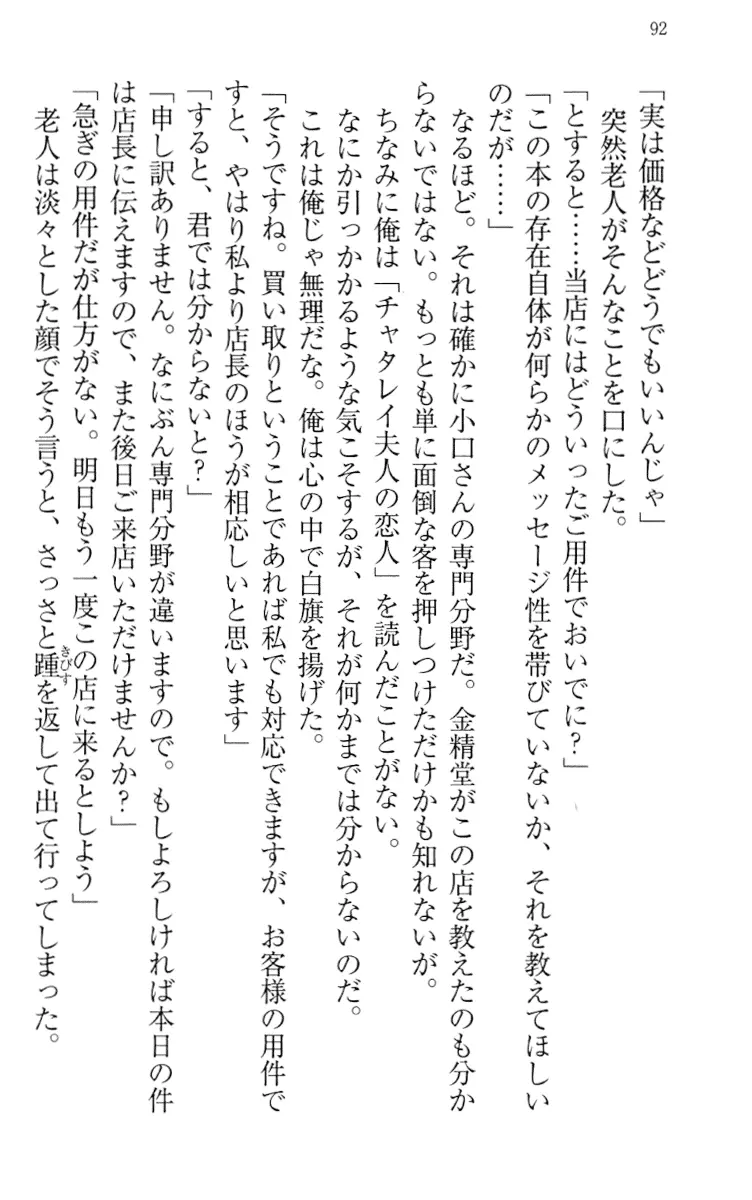 92
「実は価格などどうでもいいんじゃ」
突然老人がそんなことを口にした。
「とすると……当店にはどういったご用件でおいでに？」
「この本の存在自体が何らかのメッセージ性を帯びていないか、それを教えてほしい
のだが……」
なるほど。それは確かに小口さんの専門分野だ。金精堂がこの店を教えたのも分か
らないではない。もっとも単に面倒な客を押しつけただけかも知れないが。
ちなみに俺は「チャタレイ夫人の恋人」を読んだことがない。
なにか引っかかるような気こそするが、それが何かまでは分からないのだ。
これは俺じゃ無理だな。俺は心の中で白旗を揚げた。
「そうですね。買い取りということであれば私でも対応できますが、お客様の用件で
すと、やはり私より店長のほうが相応しいと思います」
「すると、君では分からないと？」
「申し訳ありません。なにぶん専門分野が違いますので。もしよろしければ本日の件
は店長に伝えますので、また後日ご来店いただけませんか？」
「急ぎの用件だが仕方がない。明日もう一度この店に来るとしよう」
老人は淡々とした顔でそう言うと、さっさと踵きびすを返して出て行ってしまった。